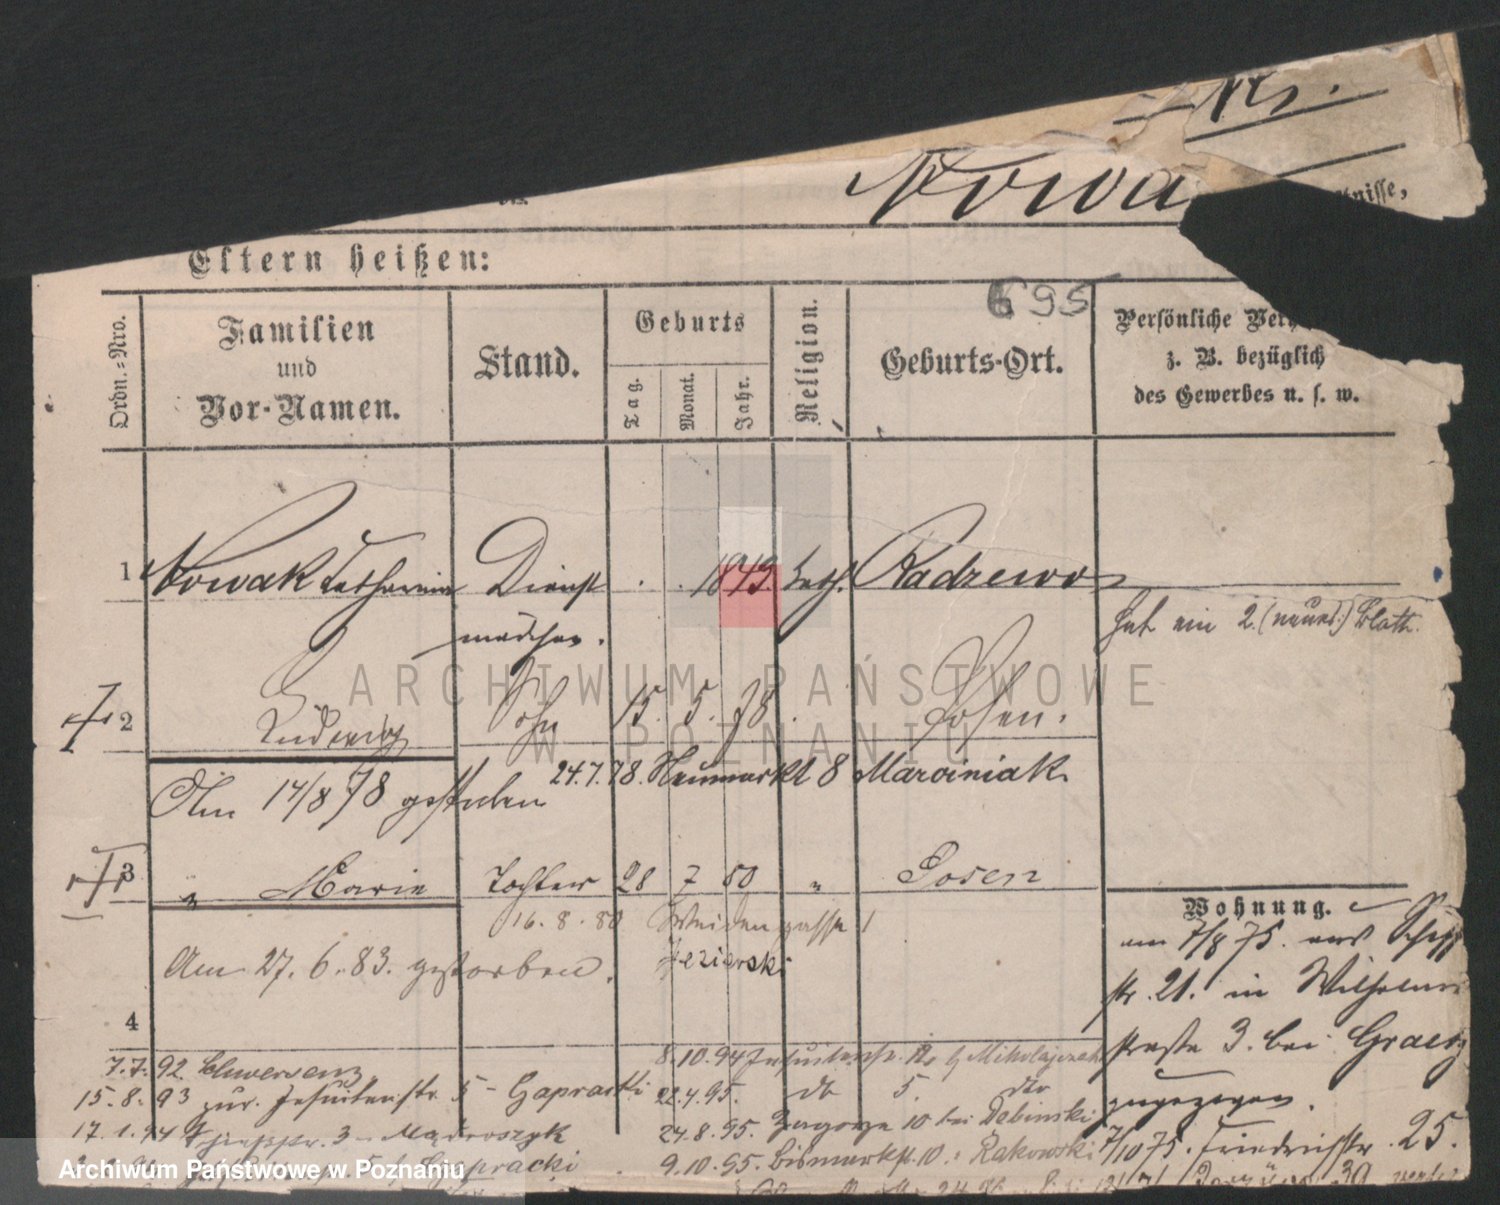 Nowa
Eltern heißen:
695
Ordn.-Nro.
Familien
und
Vor-Namen.
Stand.
Geburts
Tag.
Monat.
Jahr.
Religion.
Geburts-Ort.
Persönliche
z. B. bezüglich
des Gewerbes u. s. w.
1 Nowak Catharina Dienst 1849. kath. Radzewo
mädchen.
hat ein 2. (neues) Blatt.
2 Ludwig Sohn 15. 5. 78. Posen.
24.7.78. Neumarkt 8 Marciniak
Am 14/8 78 gestorben
3 " Marie Tochter 28 7 80 " Posen
16. 8. 80 Weidengasse 1
Jezierski
Am 27. 6. 83. gestorben.
Wohnung.
am 7/8 75. aus
str. 21. in Wilhelms
straße 3. bei
zugezogen.
7/10 75. Friedrichstr. 25.
4
7.7.92 Schwersenz
15.8.93 zur. Jesuitenstr 5
17.1.94 3
8.10.94 Jesuitenstr. 12 b/ Mikolajczak
22.4.95. dto 5. dto
24.8.95. Zagorze 10 bei Debinski
9.10.95. Bismarckstr. 10. Rakowski
ARCHIWUM PAŃSTWOWE
W POZNANIU
Archiwum Państwowe w Poznaniu